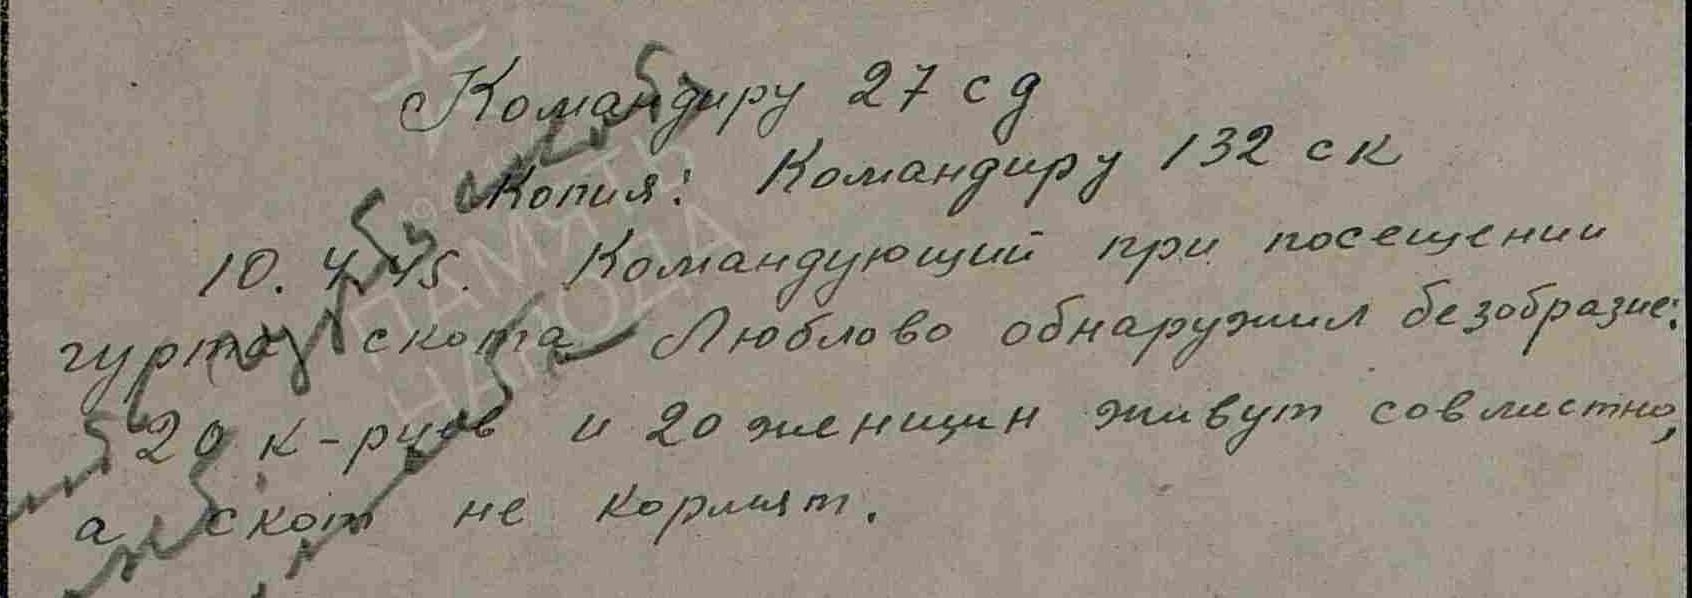 Командиру 27 сд
Копия: Командиру 132 ск
10.4.45. Командующий при посещении
гурта скота Люблово обнаружил безобразие:
20 к-ров и 20 женщин живут совместно,
а скот не кормят.
ПАМЯТЬ
НАРОДА